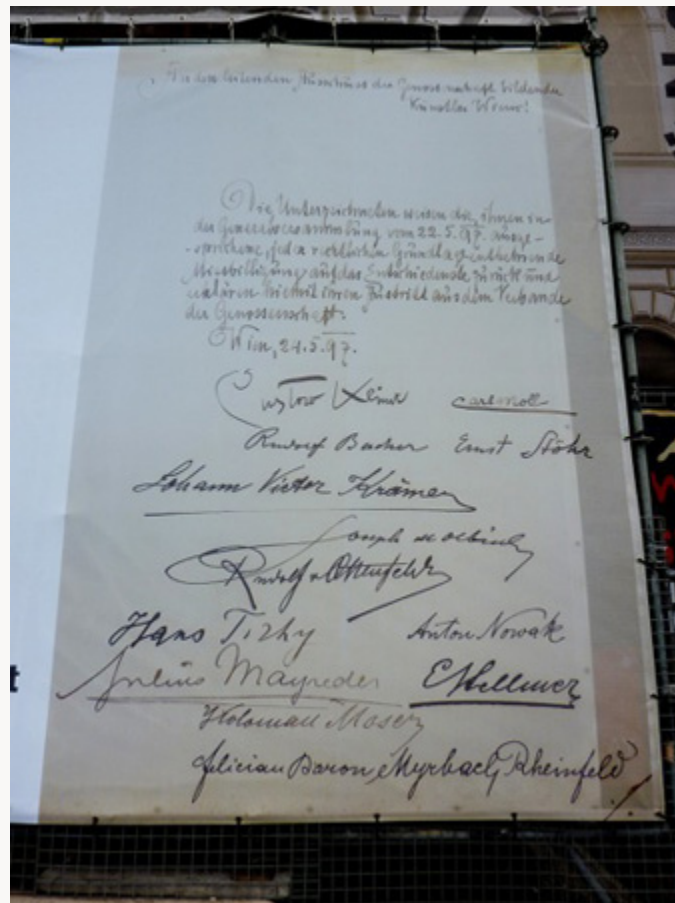 An den leitenden Ausschuss der Genossenschaft bildender
Künstler Wiens!
Die Unterzeichneten weisen die, ihnen in
der Generalversammlung vom 22.5.97. ausge-
sprochene, jeder rechtlichen Grundlage entbehrende
Missbilligung auf das Entschiedenste zurück und
erklären hiermit ihren Austritt aus dem Verbande
der Genossenschaft.
Wien, 24.5.97.
Gustav Klimt Carl Moll
Rudolf Bacher Ernst Stöhr
Johann Victor Krämer
Joseph M Olbrich
Rudolf v Ottenfeld
Hans Tichy Anton Nowak
Julius Mayreder E Hellmer
Koloman Moser
Felician Baron Myrbach Rheinfeld
t